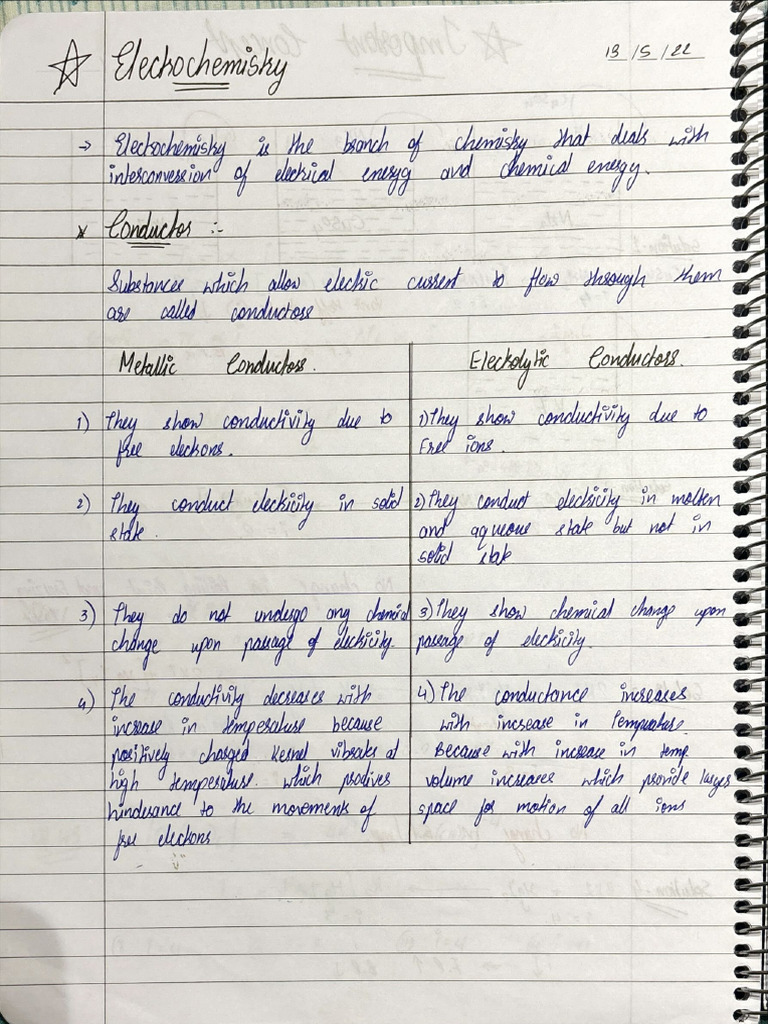 ☆ Electrochemistry
13/5/22
→ Electrochemistry is the branch of chemistry that deals with
interconversion of electrical energy and chemical energy.
* Conductor :-
Substances which allow electric current to flow through them
are called conductors
Metallic Conductors.
1) They show conductivity due to
free electrons.
2) They conduct electricity in solid
state.
3) They do not undergo any chemical
change upon passage of electricity.
4) The conductivity decreases with
increase in temperature because
positively charged kernel vibrates at
high temperature. which
hinderance to the movements of
free electrons
Electrolytic Conductors.
1) They show conductivity due to
Free ions.
2) They conduct electricity in molten
and aqueous state but not in
solid state
3) They show chemical change upon
passage of electricity.
4) The conductance increases
with increase in Temprature.
Because with increase in temp
volume increases which provide larger
space for motion of all ions